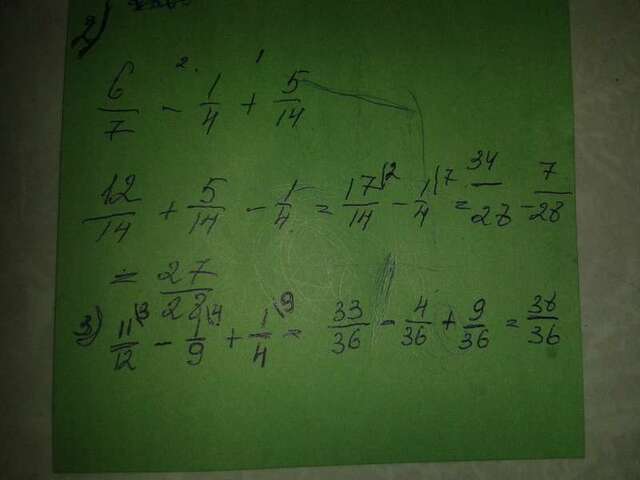 2)
2. 1
6/7 - 1/4 + 5/14
12/14 + 5/14 - 1/4 = 17/14 \2 - 1/4 \7 = 34/28 - 7/28
= 27/28
3) 11/12 \3 - 1/9 \4 + 1/4 \9 = 33/36 - 4/36 + 9/36 = 38/36